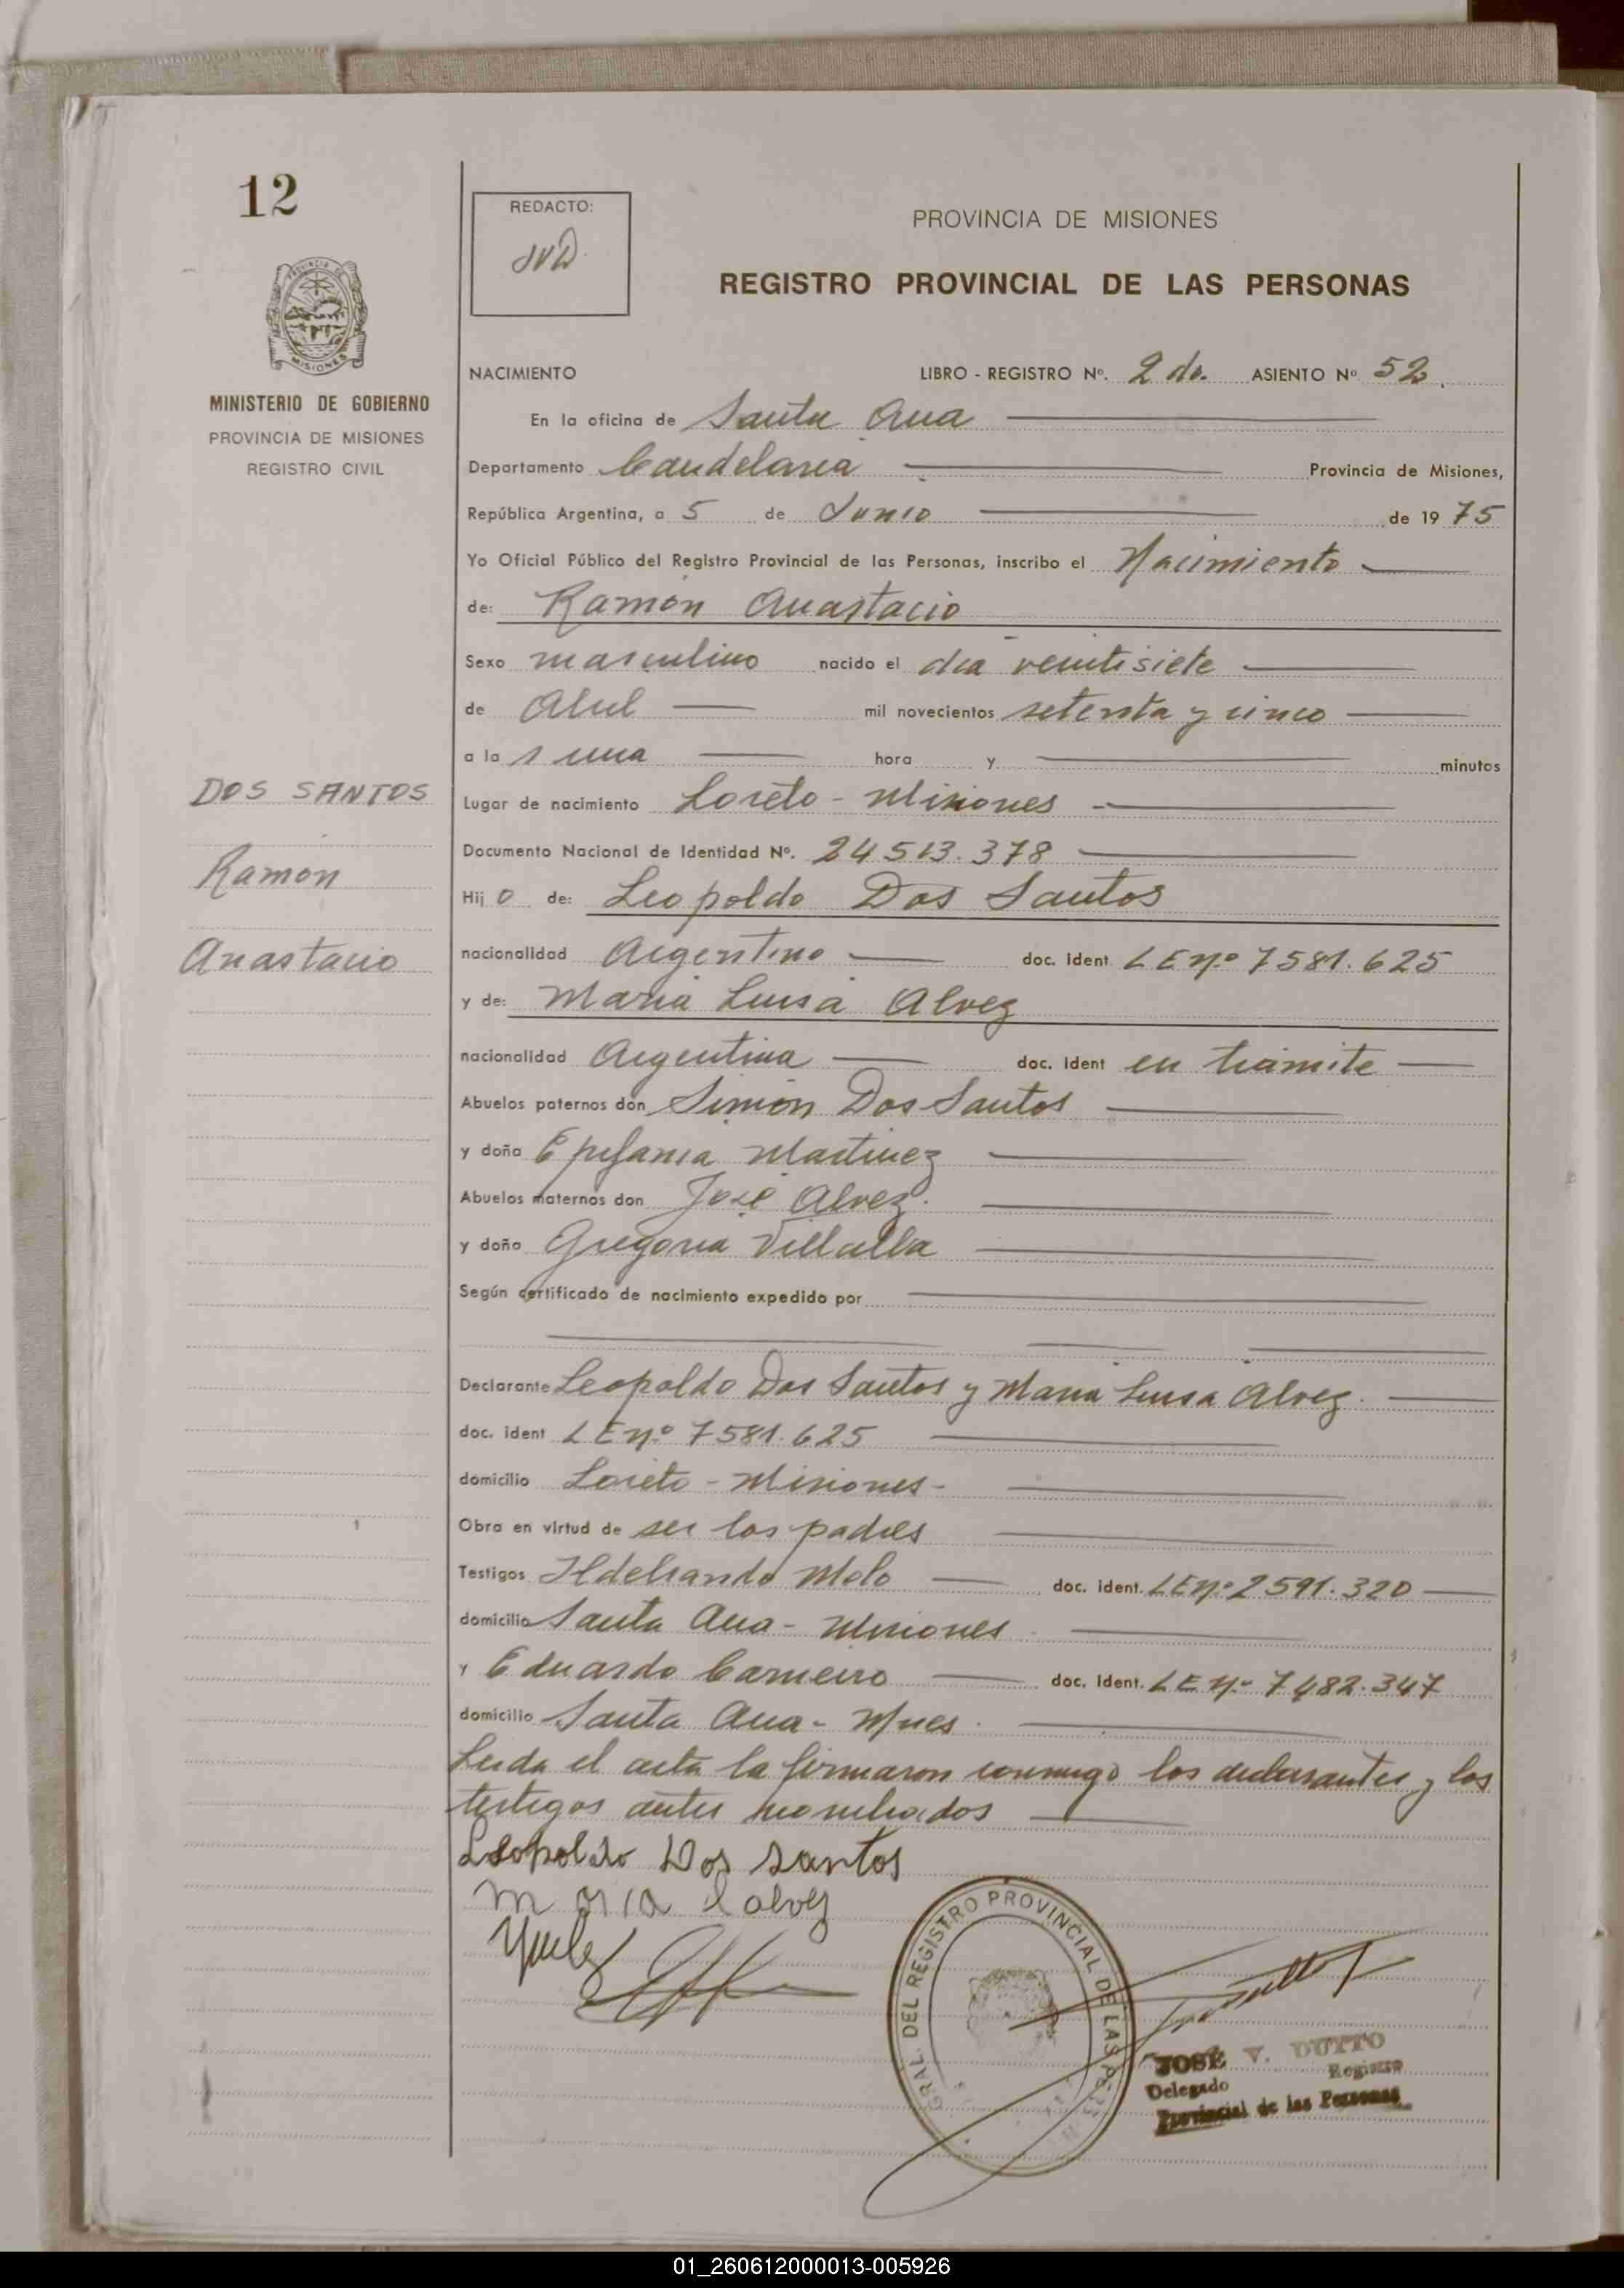 12
REDACTO:
JVD.
PROVINCIA DE MISIONES
REGISTRO PROVINCIAL DE LAS PERSONAS
PROVINCIA DE
MISIONES
MINISTERIO DE GOBIERNO
PROVINCIA DE MISIONES
REGISTRO CIVIL
NACIMIENTO LIBRO - REGISTRO Nº. 2 do. ASIENTO Nº 52.
En la oficina de Santa Ana
Departamento Candelaria Provincia de Misiones,
República Argentina, a 5 de Junio de 19 75
Yo Oficial Público del Registro Provincial de las Personas, inscribo el Nacimiento
de: Ramón Anastacio
Sexo masculino nacido el día veintisiete
de Abril mil novecientos setenta y cinco
a la 1 una hora y minutos
DOS SANTOS
Ramón
Anastacio
Lugar de nacimiento Loreto - Misiones
Documento Nacional de Identidad Nº. 24513.378
Hij o de: Leopoldo Dos Santos
nacionalidad Argentino doc. Ident LE nº 7581.625
y de: Maria Luisa Alvez
nacionalidad Argentina doc. Ident en trámite
Abuelos paternos don Simón Dos Santos
y doña Epifania Martinez
Abuelos maternos don José Alvez.
y doña Gregoria Villalba
Según certificado de nacimiento expedido por
Declarante Leopoldo Dos Santos y Maria Luisa Alvez.
doc. ident LE nº 7581.625
domicilio Loreto - Misiones -
Obra en virtud de ser los padres
Testigos Ildebrando Melo doc. ident. LE nº 2591.320
domicilio Santa Ana - Misiones
y Eduardo Carneiro doc. Ident. LE nº 7482.347
domicilio Santa Ana - Mnes.
Leida el acta la firmaron conmigo los declarantes y los
testigos antes nombrados
Leopoldo Dos santos
maria l alvez
GRAL. DEL REGISTRO PROVINCIAL DE LAS
JOSE V. DUTTO
Delegado Registro
Provincial de las Personas
01_260612000013-005926